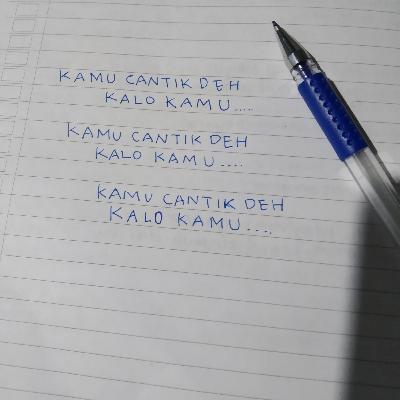 KAMU CANTIK DEH
KALO KAMU.....
KAMU CANTIK DEH
KALO KAMU....
KAMU CANTIK DEH
KALO KAMU....